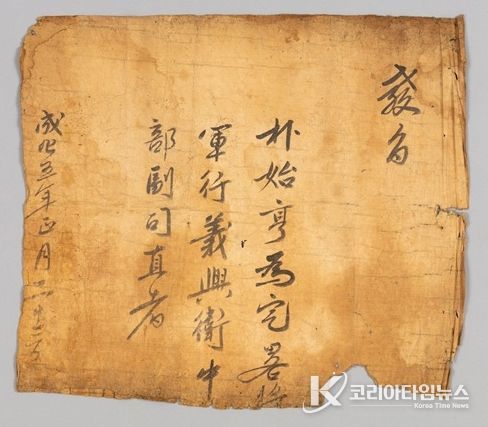 教旨
朴始亨爲定畧將
軍行義興衛中
部副司直者
成化五年正月二十日
코리아타임뉴스
Korea Time News